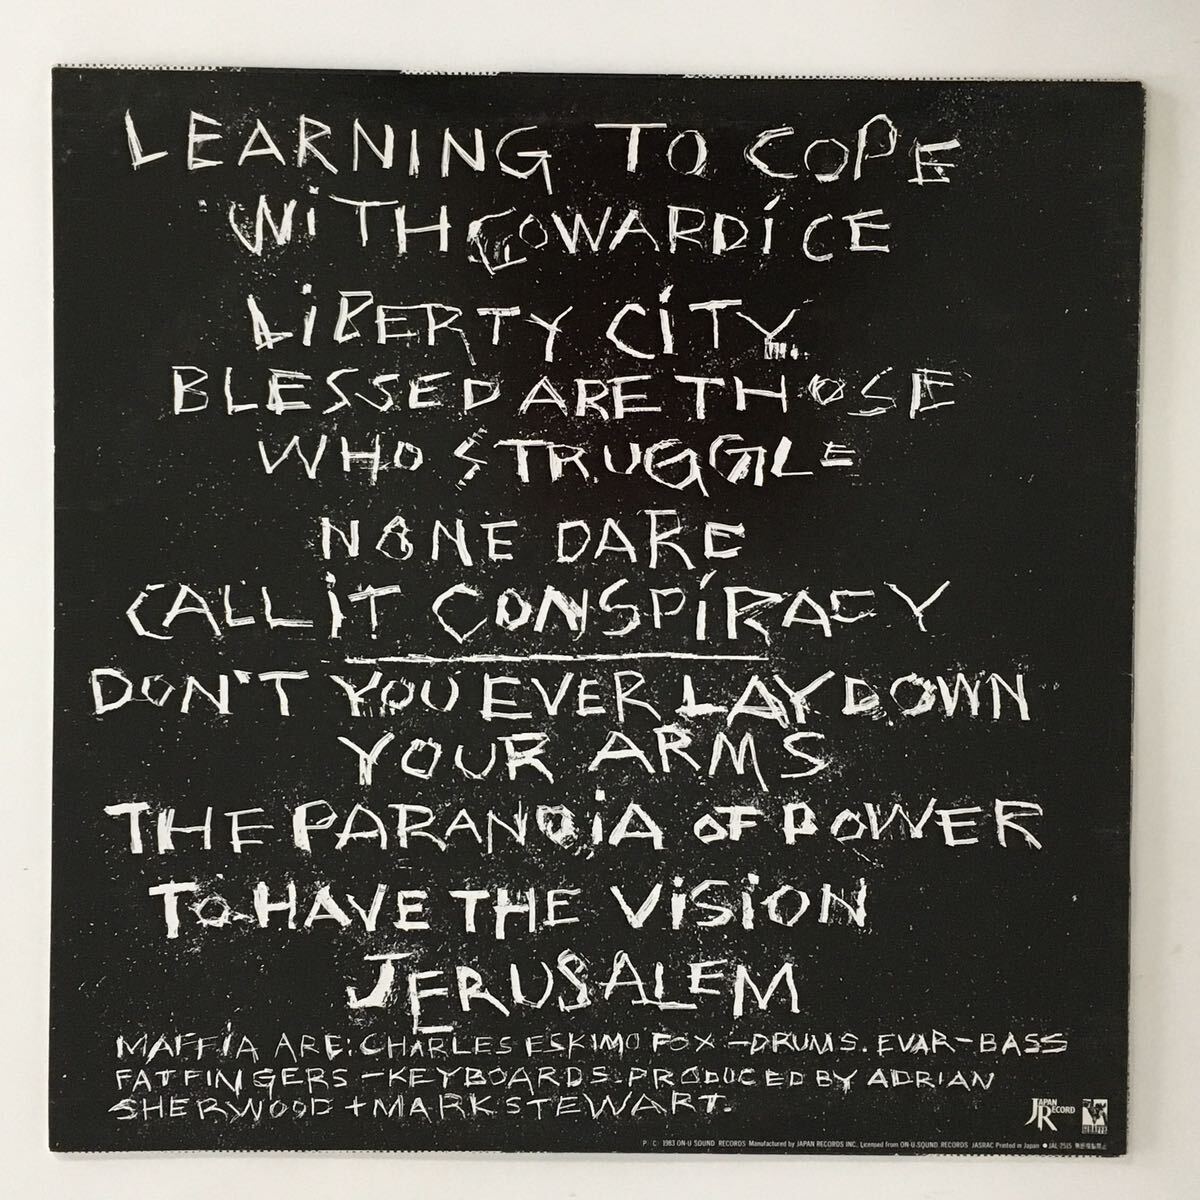 LEARNING TO COPE
WITH COWARDICE
LIBERTY CITY
BLESSED ARE THOSE
WHO STRUGGLE
NONE DARE
CALL IT CONSPIRACY
DON'T YOU EVER LAY DOWN
YOUR ARMS
THE PARANOIA OF POWER
TO HAVE THE VISION
JERUSALEM
MAFFIA ARE: CHARLES ESKIMO FOX - DRUMS. EVAR - BASS
FATFINGERS - KEYBOARDS. PRODUCED BY ADRIAN
SHERWOOD + MARK STEWART.
JAPAN RECORD
GIRAFFE
P C 1983 ON-U SOUND RECORDS Manufactured by JAPAN RECORDS INC. Licensed from ON-U SOUND RECORDS JASRAC Printed in Japan ● JAL-2515 無断複製禁止